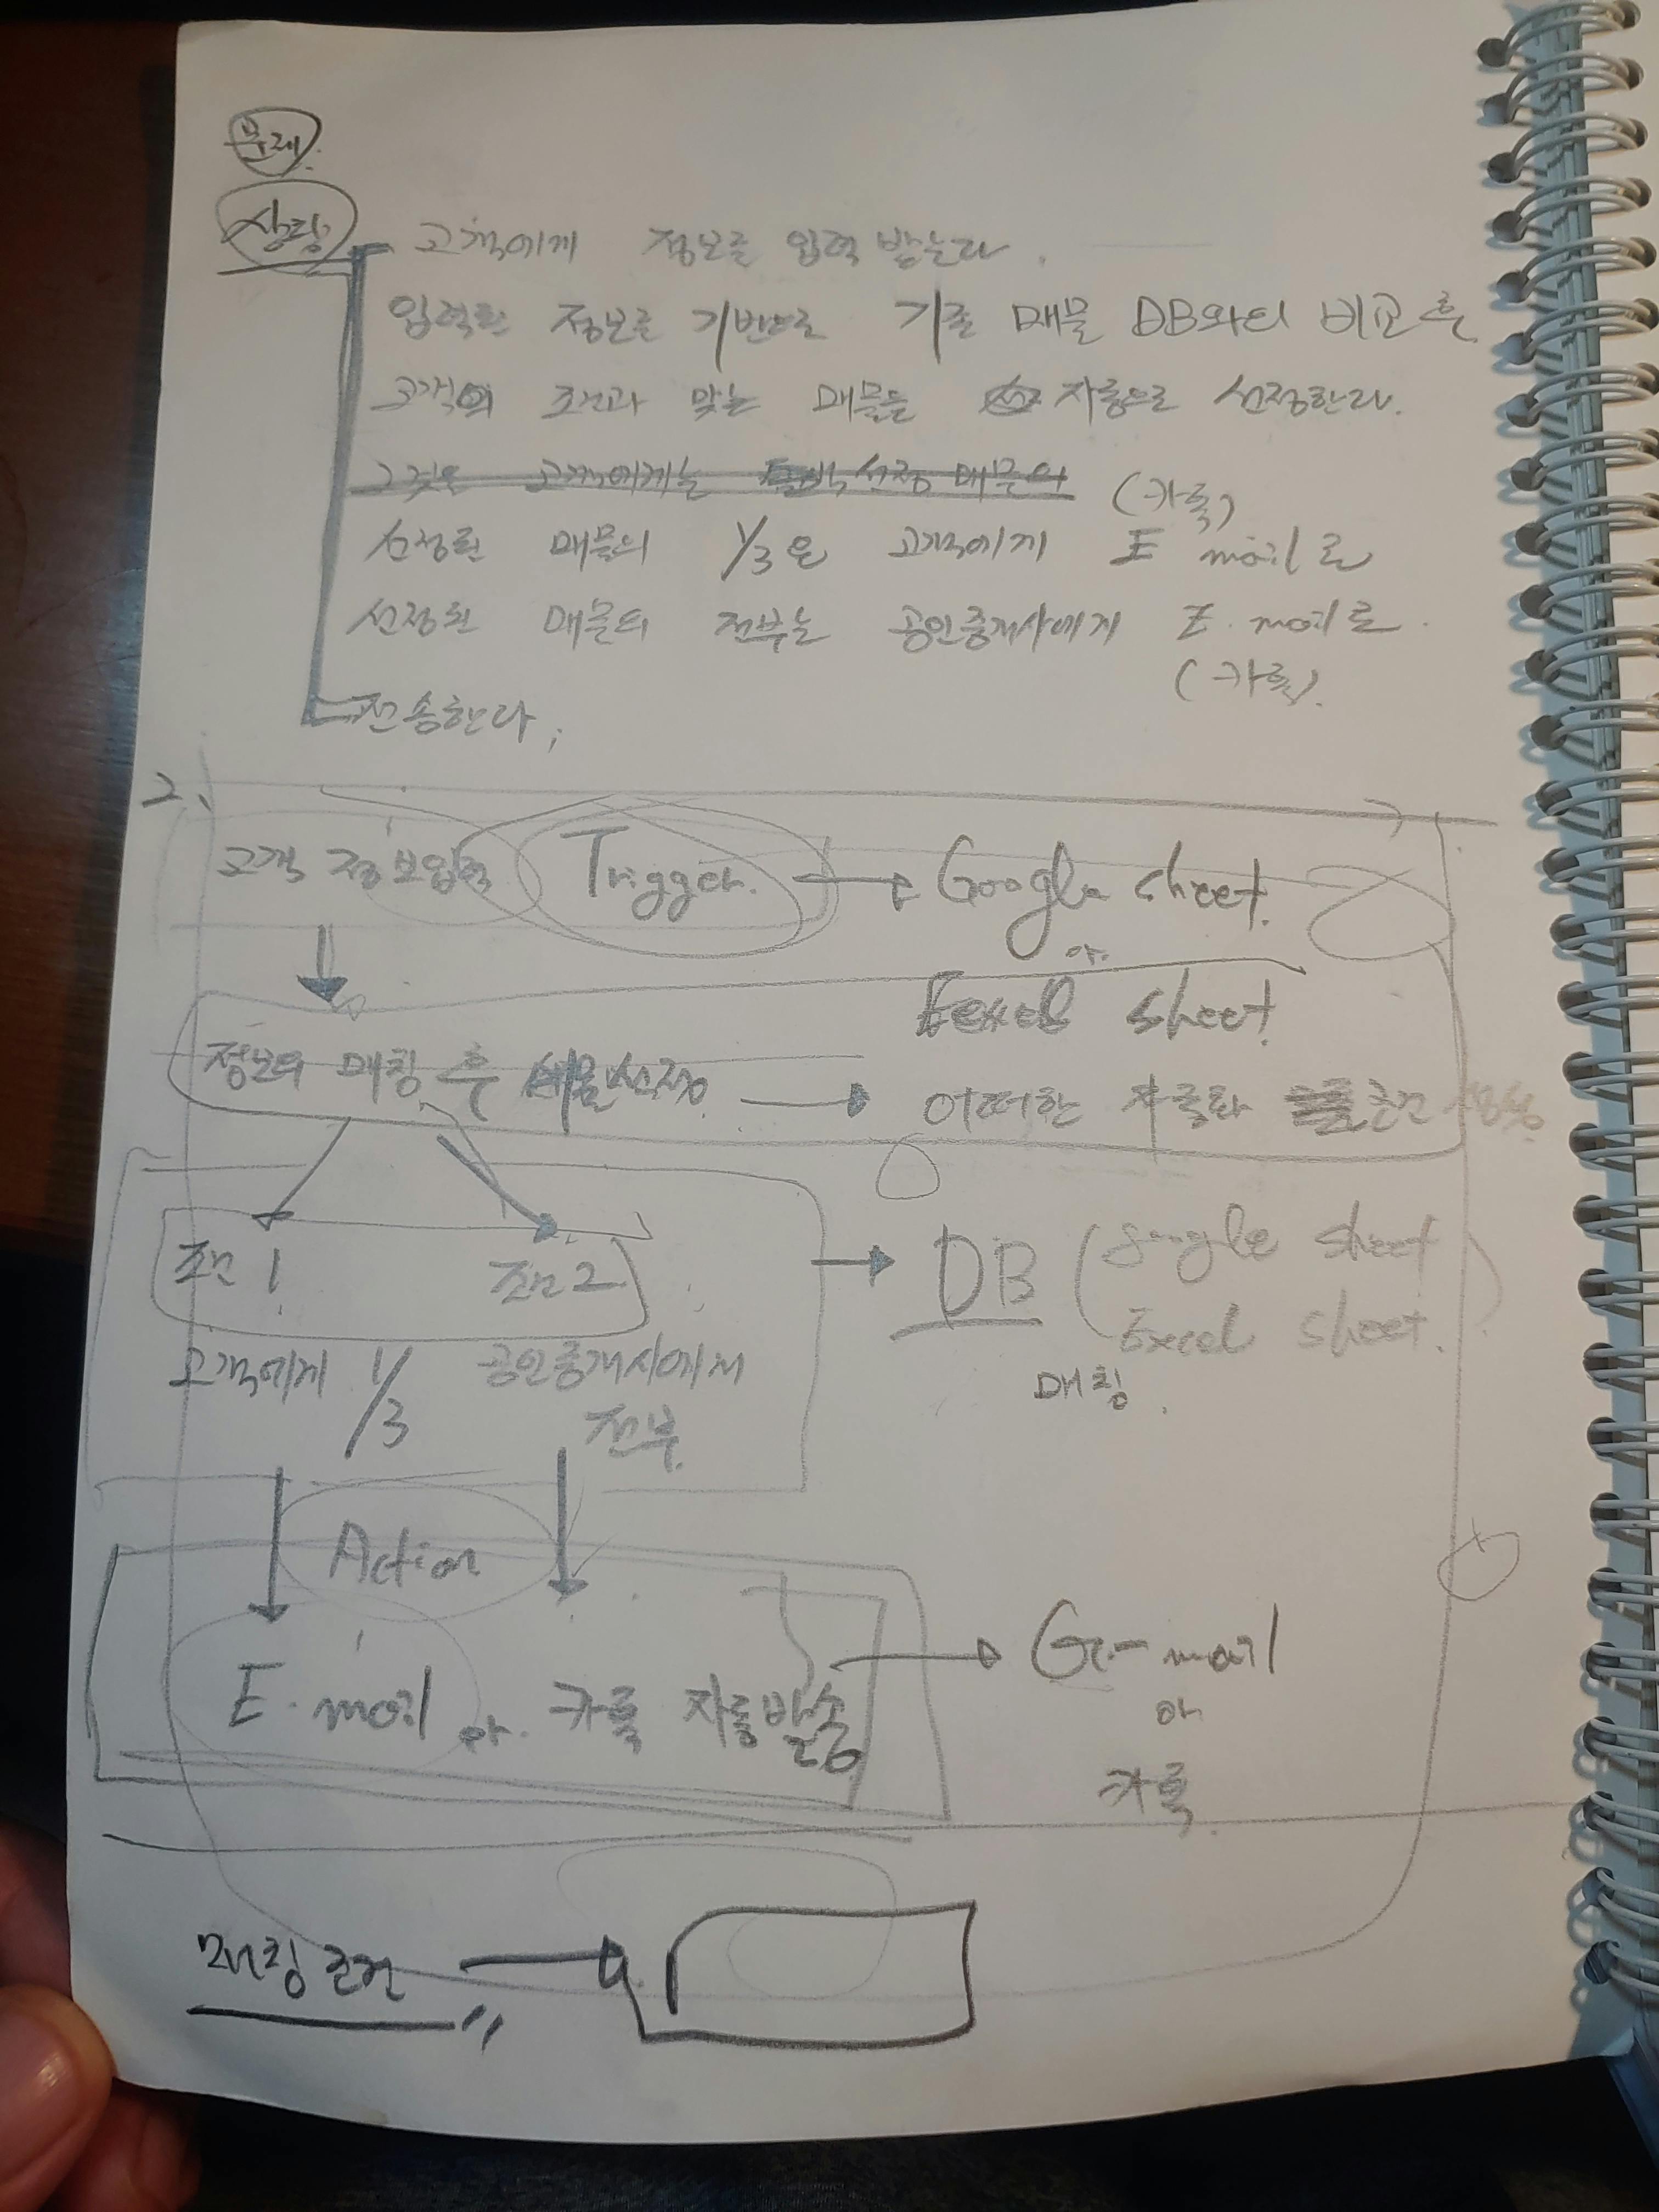 문제.
상황
고객에게 정보를 입력 받는다.
입력된 정보를 기반으로 기존 매물 DB와의 비교 후
고객의 조건과 맞는 매물을 자동으로 선정한다.
그것은 고객에게는 선정 매물의
(카톡)
선정된 매물의 1/3은 고객에게 E mail로
선정된 매물의 전부는 공인중개사에게 E.mail로
(카톡).
전송한다.
2.
고객 정보입력 Trigger. Google sheet.
or
Excel sheet
정보의 매칭 후 매물선정 어떠한 자료와
조건 1 조건 2 DB (google sheet
Excel sheet.)
고객에게 1/3 공인중개사에게 전부
매칭.
Action
E.mail or 카톡 자동발송 G-mail
or
카톡.
매칭조건